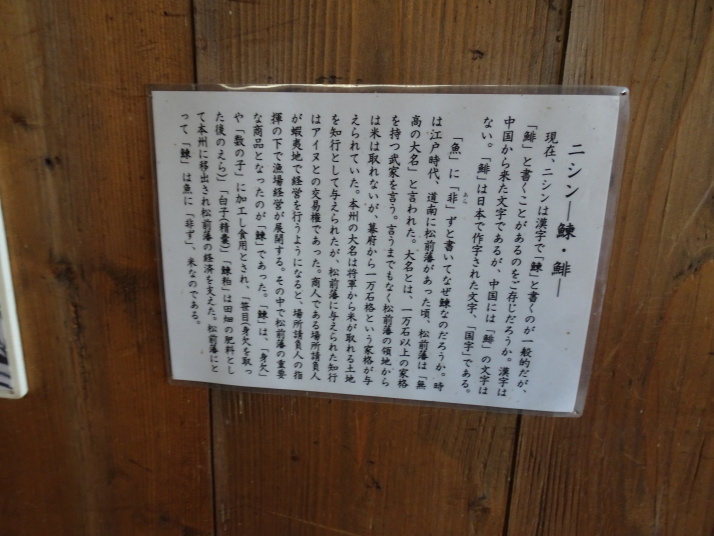 ニシン―鰊・鯡―
現在、ニシンは漢字で「鰊」と書くのが一般的だが、
「鯡」と書くことがあるのをご存じだろうか。漢字は
中国から来た文字であるが、中国には「鯡」の文字は
ない。「鯡」は日本で作字された文字、「国字」である。
「魚」に「非」ずと書いてなぜ鰊なのだろうか。時
は江戸時代、道南に松前藩があった頃、松前藩は「無
高の大名」と言われた。大名とは、一万石以上の家格
を持つ武家を言う。言うまでもなく松前藩の領地から
は米は取れないが、幕府から一万石格という家格が与
えられていた。本州の大名は将軍から米が取れる土地
を知行として与えられたが、松前藩に与えられた知行
はアイヌとの交易権であった。商人である場所請負人
が蝦夷地で経営を行うようになると、場所請負人の指
揮の下で漁場経営が展開する。その中で松前藩の重要
な商品となったのが「鰊」であった。「鰊」は、「身欠」
や「数の子」に加工し食用とされ、「笹目(身欠を取っ
た後のえら)」「白子(精嚢)」「鰊粕」は田畑の肥料とし
て本州に移出され松前藩の経済を支えた。松前藩にと
って「鰊」は魚に「非ず」、米なのである。